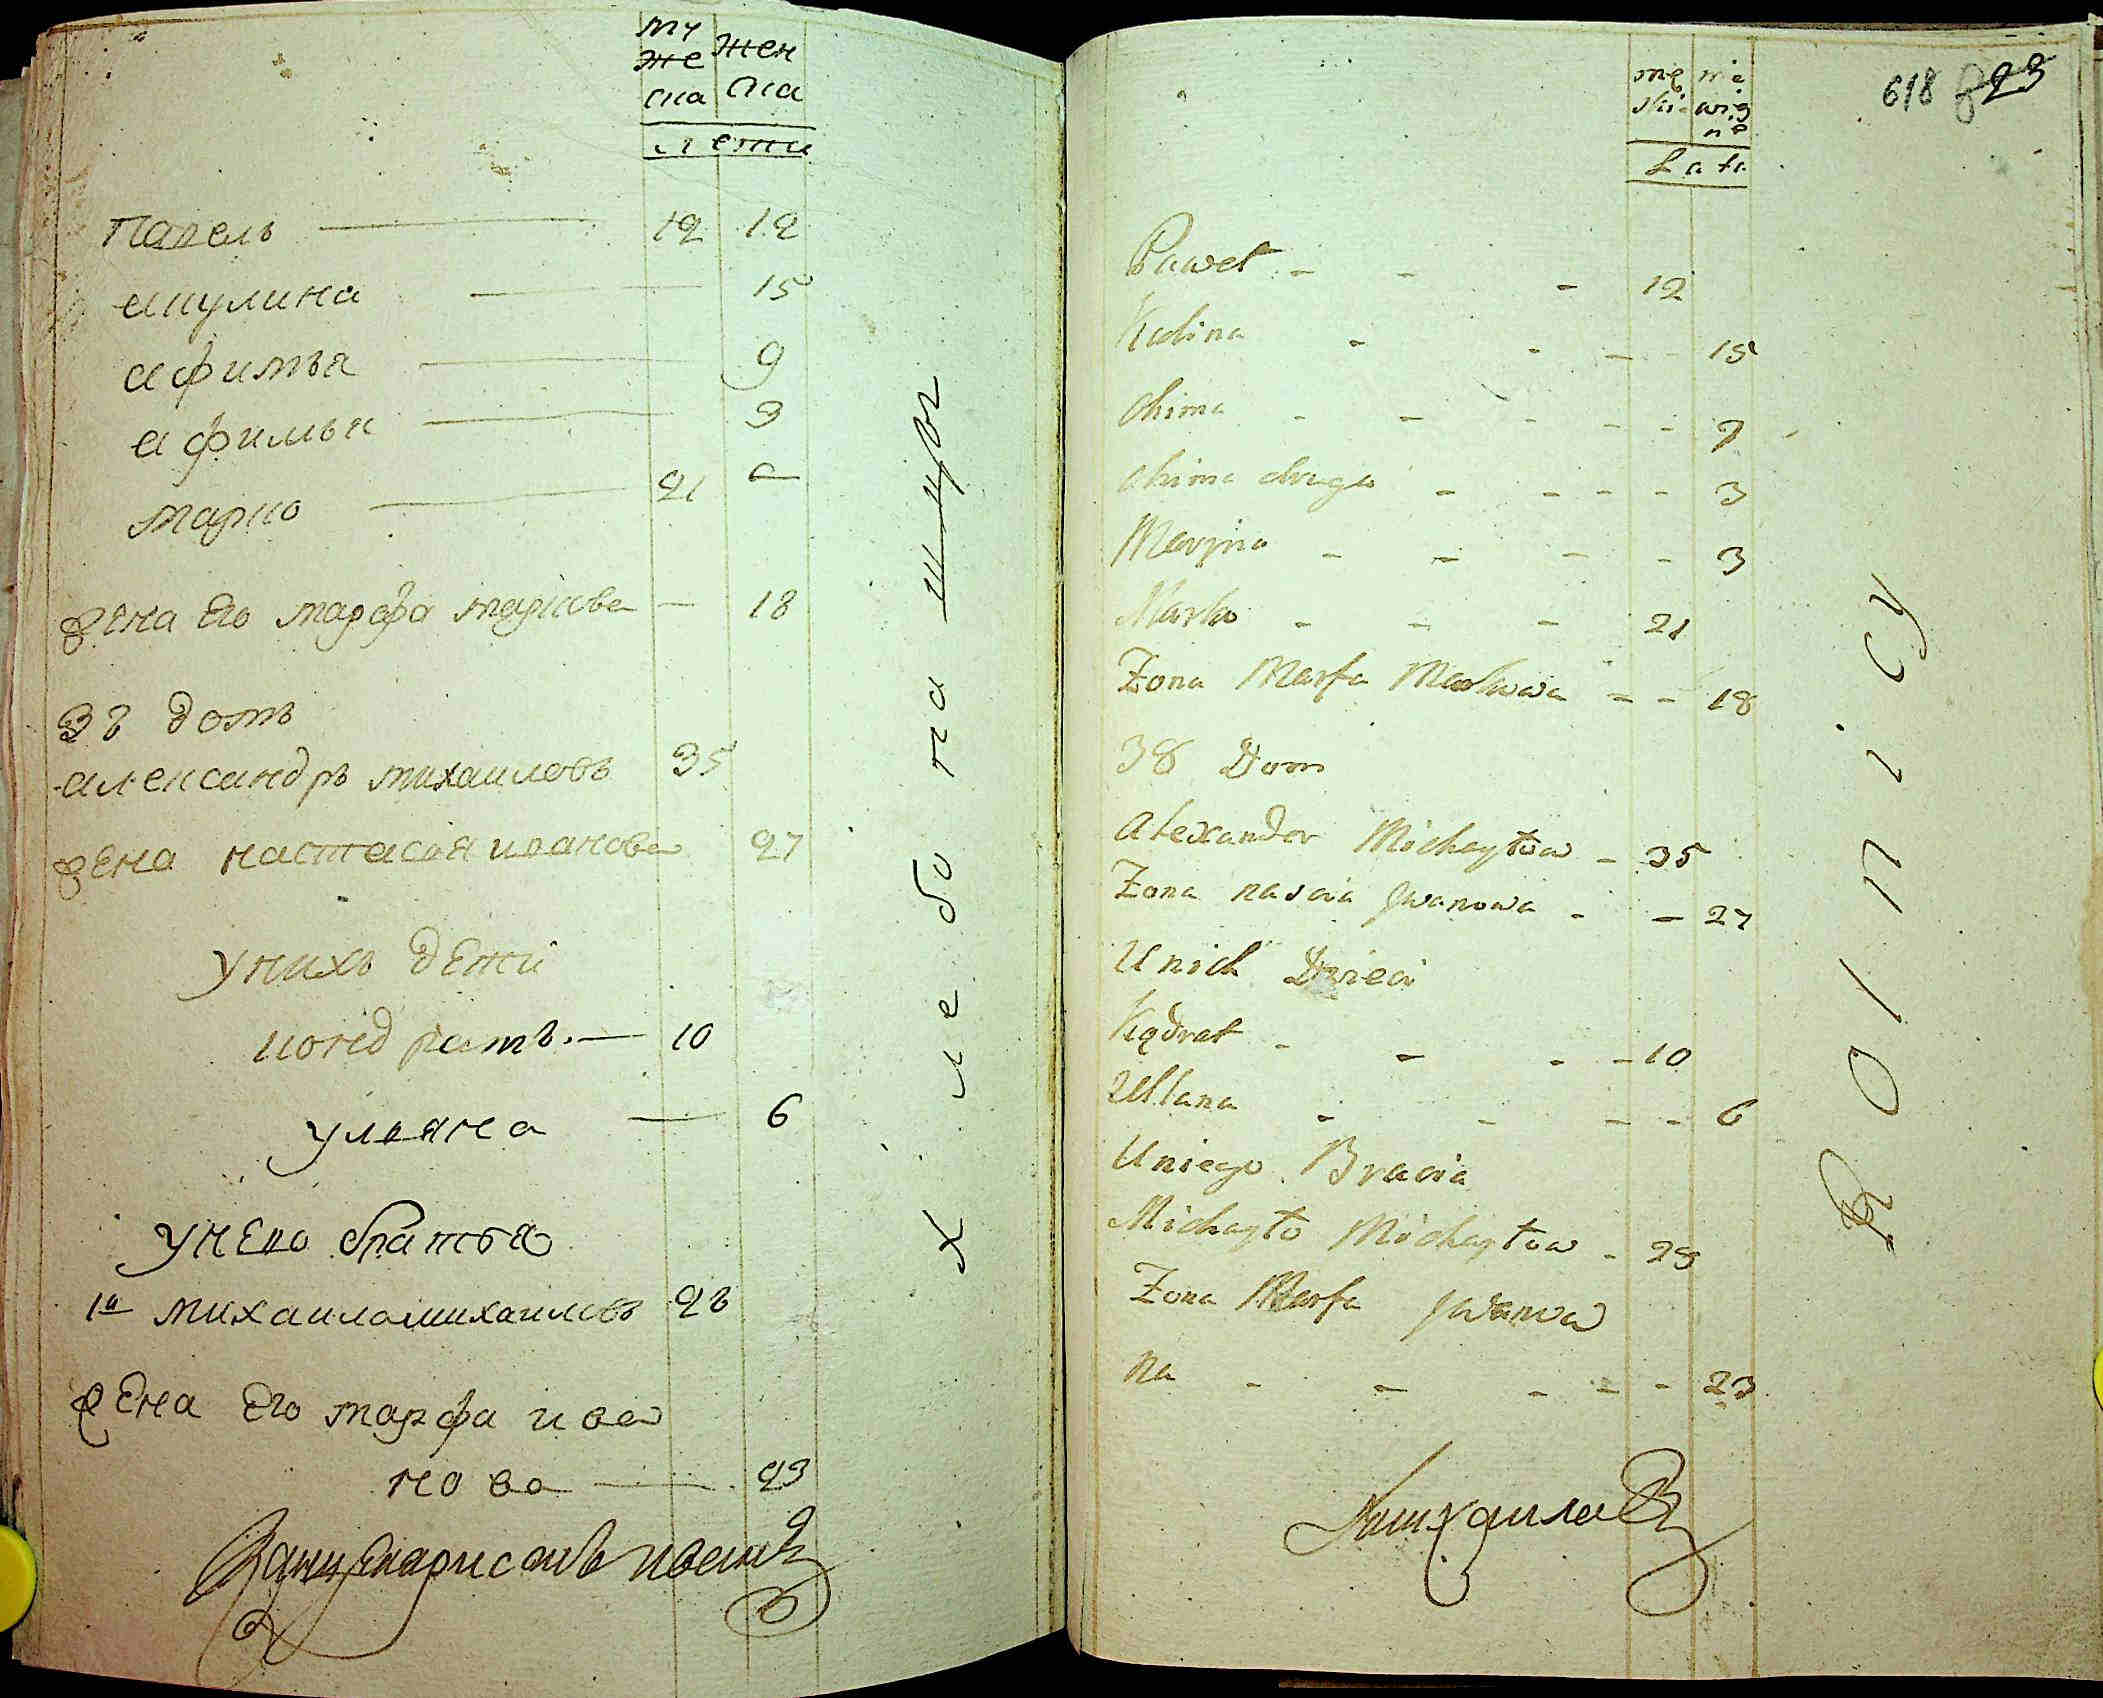 му
же
ска
жен
ска
лети
Павелъ 12 12
акулина 15
афимья 9
афимья 3
марко 21
жена Его марфа маркова 18
38 домъ
александръ михаиловъ 35
жена настасия иванова 27
унихъ дети
кондратъ 10
уляна 6
унего братья
1й михаила михаиловъ 28
жена Его марфа ива
нова 23
хлебопашцы
618 23
mę
skie
nie
wieś
ne
Lata
Paweł 12
Kulina 15
Ohima 9
Ohima druga 3
Maryna 3
Marko 21
Żona Marfa Markowa 18
38 Dom
Alexander Michayłow 35
Żona nascia Jwanowa 27
Unich Dzieci
Kądrat 10
Ullana 6
Uniego Bracia
Michayło Michayłow 28
Żona Marfa Jwanow
na 23
Rolnicy